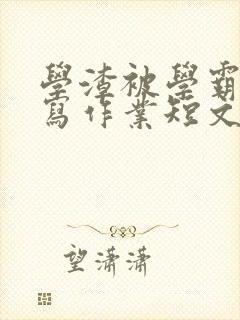 學渣被學霸
寫作業短文
望瀟瀟